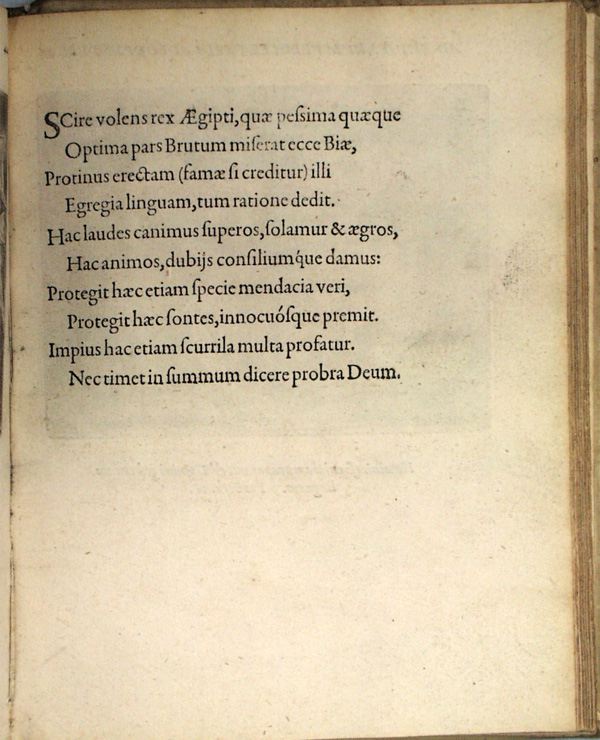 SCire volens rex Ægipti, quæ peſsima quæque
Optima pars Brutum miſerat ecce Biæ,
Protinus erectam (famæ ſi creditur) illi
Egregia linguam, tum ratione dedit.
Hac laudes canimus ſuperos, ſolamur & ægros,
Hac animos, dubijs conſiliumq́ue damus:
Protegit hæc etiam ſpecie mendacia veri,
Protegit hæc ſontes, innocuóſque premit.
Impius hac etiam ſcurrila multa profatur.
Nec timet in ſummum dicere probra Deum.